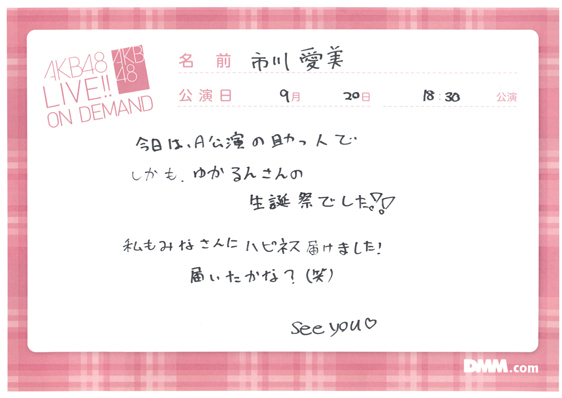 AKB48
LIVE!!
ON DEMAND
AKB
48
名前 市川愛美
公演日 9月 20日 18:30 公演
今日は、A公演の助っ人で
しかも、ゆかるんさんの
生誕祭でした!!
私もみなさんにハピネス届けました!
届いたかな?(笑)
see you♡
DMM.com